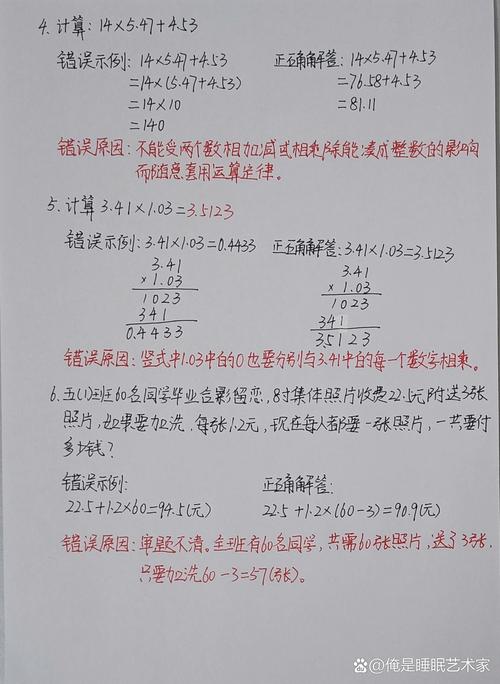 4. 计算: 14×5.47+4.53
错误示例: 14×5.47+4.53 正确解答: 14×5.47+4.53
=14×(5.47+4.53) =76.58+4.53
=14×10 =81.11
=140
错误原因: 不能受两个数相加减或相乘除能凑成整数的影响
而随意套用运算定律。
5. 计算3.41×1.03=3.5123
错误示例: 3.41×1.03=0.4433 正确解答: 3.41×1.03=3.5123
3.41 3.41
×1.03 ×1.03
1023 1023
341 341
0.4433 3.5123
错误原因: 竖式中1.03中的0也要分别与3.41中的每一个数字相乘。
6. 五(1)班60名同学毕业合影留恋,8寸集体照片收费22.5元附送3张
照片,如果要加洗,每张1.2元,现在每人都要一张照片,一共要付
多少钱?
错误示例: 正确解答:
22.5+1.2×60=94.5(元) 22.5+1.2×(60-3)=90.9(元)
错误原因: 审题不清。全班有60名同学,共需60张照片,送了3张,
只要加洗60-3=57(张)。
@俺是睡眠艺术家